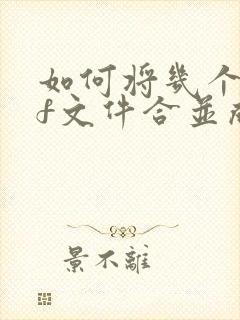 如何将几个
f文件合并
景不離